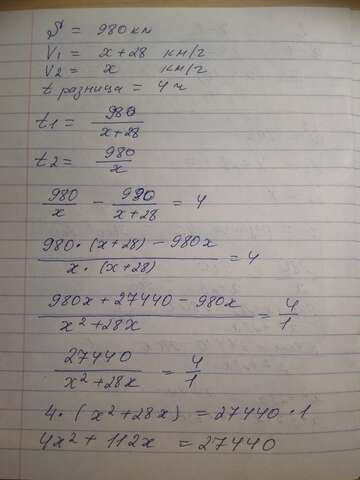 S = 980 км
V1 = x+28 км/г
V2 = x км/г
t разница = 4 ч
t1 = 980/(x+28)
t2 = 980/x
980/x - 980/(x+28) = 4
(980·(x+28) - 980x)/(x·(x+28)) = 4
(980x + 27440 - 980x)/(x²+28x) = 4/1
27440/(x²+28x) = 4/1
4·(x²+28x) = 27440·1
4x² + 112x = 27440